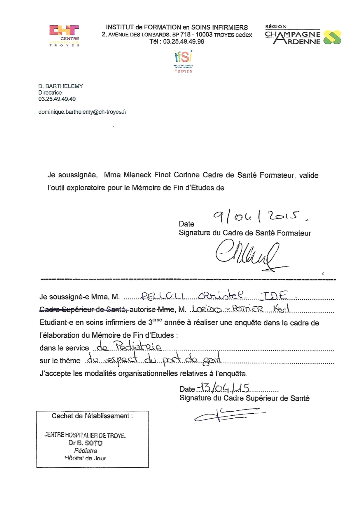 CHT
CENTRE
TROYES
INSTITUT de FORMATION en SOINS INFIRMIERS
2, AVENUE DES LOMBARDS, BP 718 - 10003 TROYES cedex
Tél : 03.25.49.49.98
RÉGION
CHAMPAGNE
ARDENNE
TROYES
D. BARTHELEMY
Directrice
03.25.49.49.49
dominique.barthelemy@ch-troyes.fr
Je soussignée, Mme Mieneck Finot Corinne Cadre de Santé Formateur, valide
l'outil exploratoire pour le Mémoire de Fin d'Etudes de
Date 9/04/2015.
Signature du Cadre de Santé Formateur
Je soussigné-e Mme, M. PELLOLI Christel IDE
Cadre Supérieur de Santé, autorise Mme, M.
Etudiant-e en soins infirmiers de 3ème année à réaliser une enquête dans le cadre de
l'élaboration du Mémoire de Fin d'Etudes :
dans le service de Pédiatrie
sur le thème du respect du port de gant
J'accepte les modalités organisationnelles relatives à l'enquête.
Date 13/04/15
Signature du Cadre Supérieur de Santé
Cachet de l'établissement :
CENTRE HOSPITALIER DE TROYES
Dr B. SOTO
Pédiatre
Hôpital de Jour